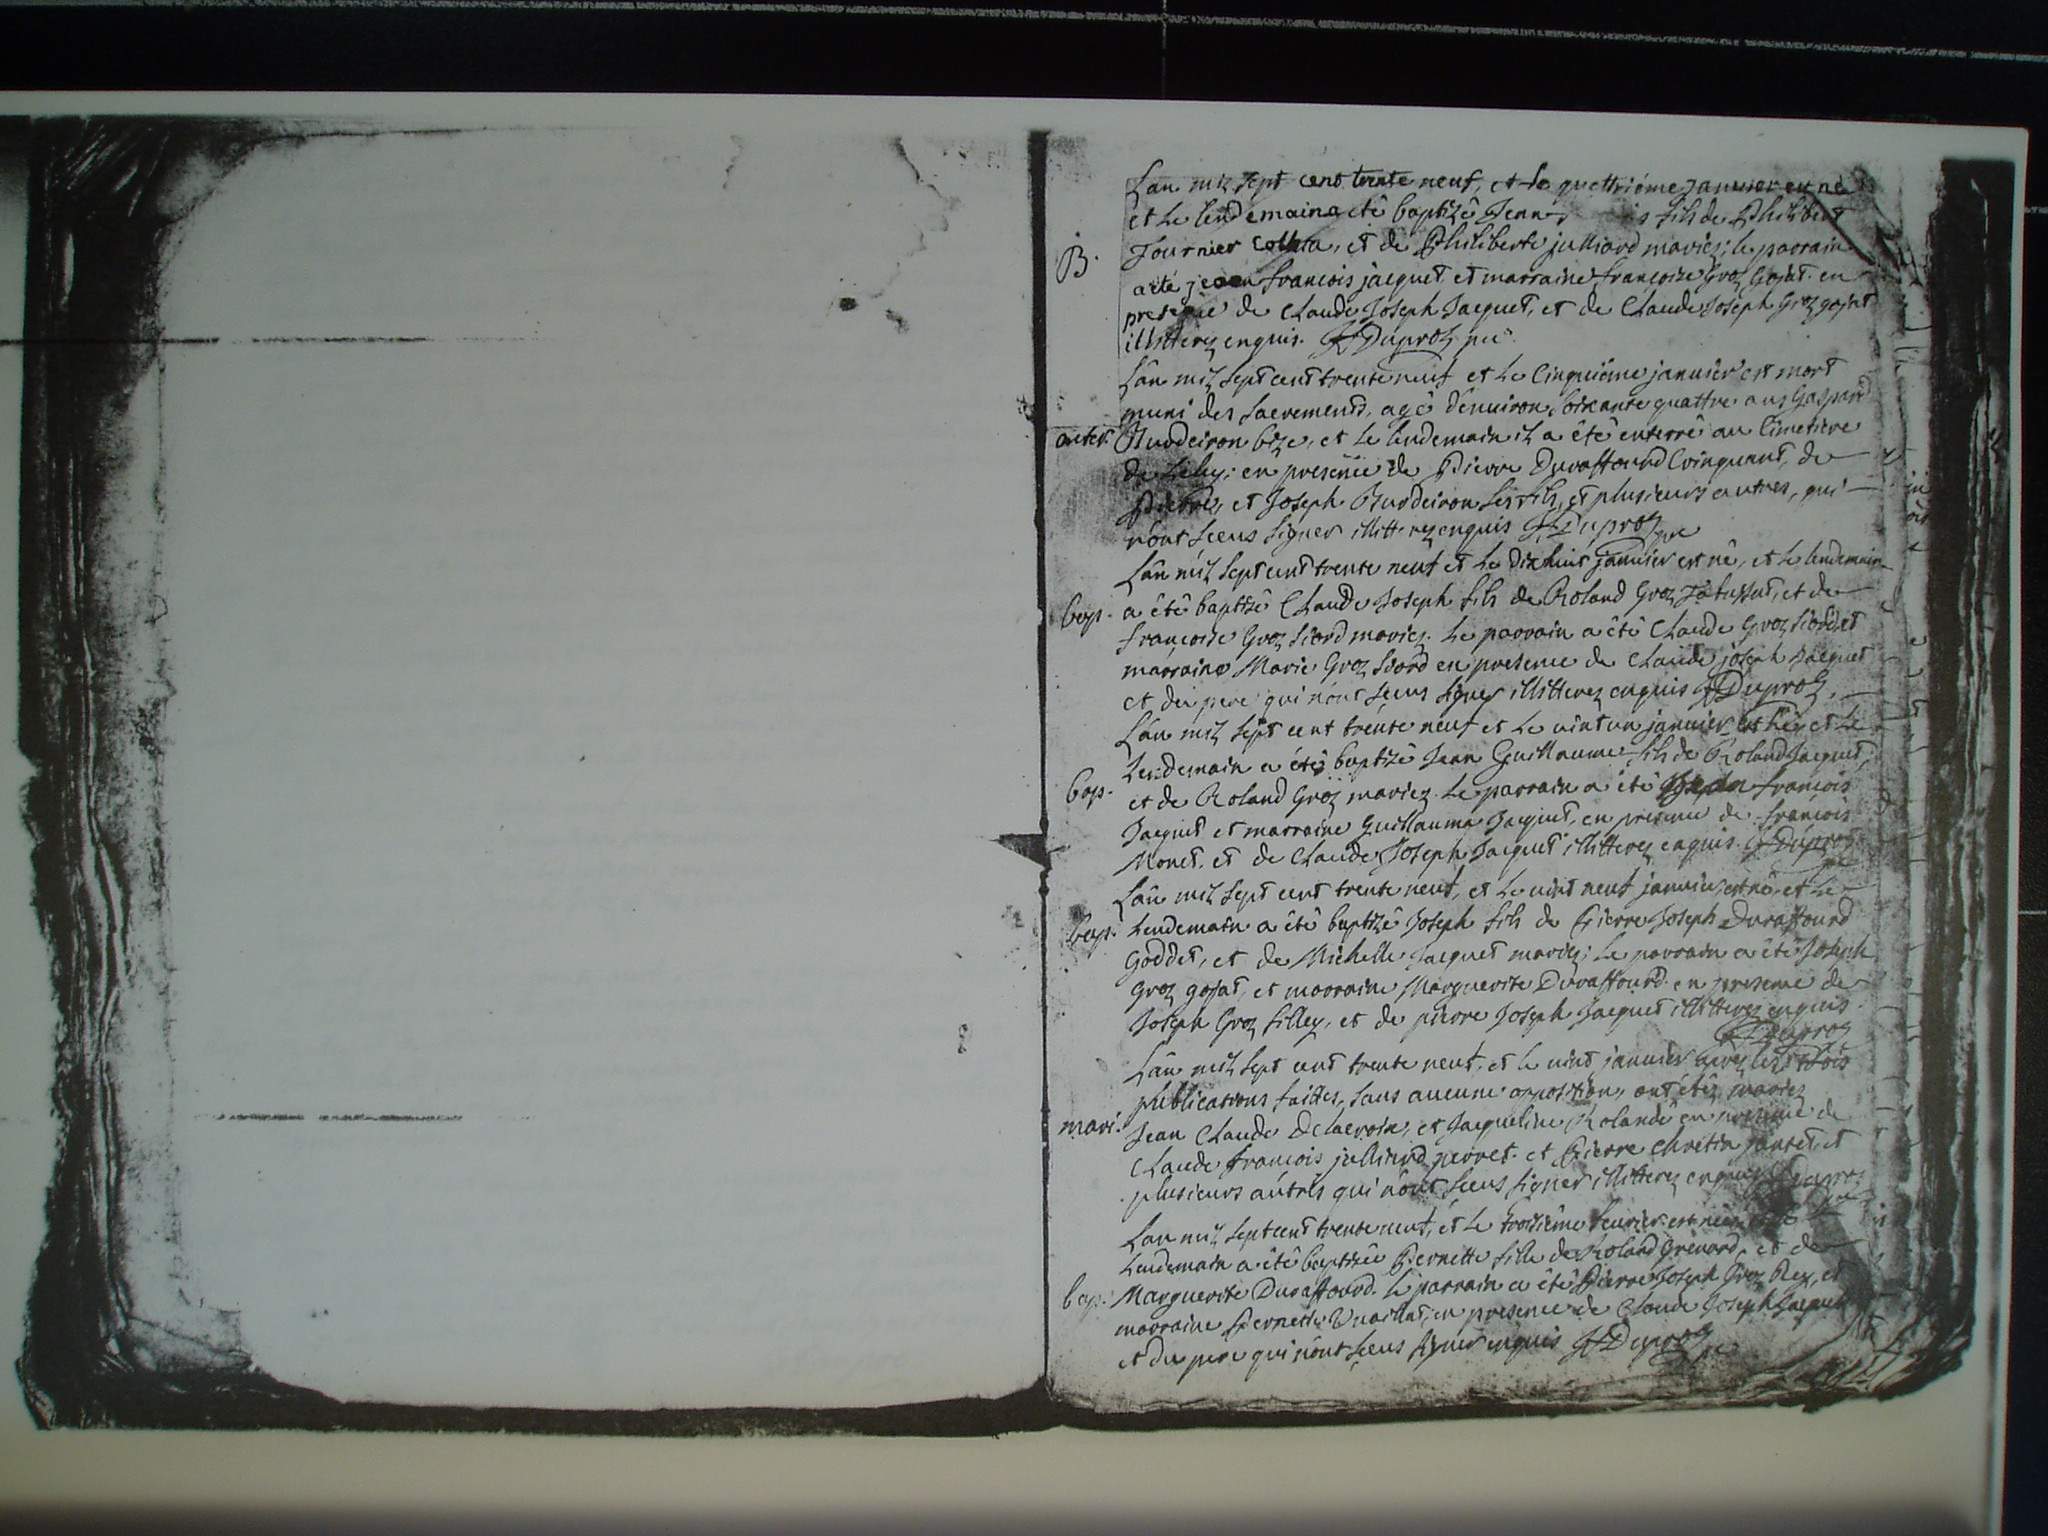 Lan mil sept cent trente neuf, et le quattriéme janvier est né
et le lendemain a eté baptizé Jean fils de Philibert
Fournier Colleta, et de Philiberte julliard mariez; le parrain
B. a été jean francois jacquet et marraine francoise Groz Gojat en
presence de Claude Joseph Jacquet, et de Claude Joseph Groz gojat
illitterez enquis. Duproz
Lân mil sept cent trente neuf et le Cinquiéme janvier est mort
muni des sacrements, agé d'environ soixante quattre ans Gaspard
enter. Burdeiron bize, et le lendemain il a été enterré au Cimetiere
de en presence de Pierre Duraffourd Coinquant, de
et Joseph Burdeiron ses fils, et plusieurs autres, qui
n'ont sceus signer illitterez enquis Duproz
Lân mil sept cent trente neuf et le dix huit janvier est né, et le lendemain
bap. a été baptizé Claude Joseph fils de Roland Groz et de
francoise Groz siord mariez. le parrain a été Claude Groz siord et
marraine Marie Groz siord en presence de Claude joseph Jacquet
et du pere qui n'ont sceus signer illitterez enquis Duproz
Lân mil sept cent trente neuf et le vint un janvier est né, et le
lendemain a été baptizé Jean Guillaume fils de Roland Jacquet,
bap. et de Roland Groz mariez. le parrain a été francois
Jacquet et marraine Guillauma Jacquet, en presence de francois
Monet, et de Claude Joseph Jacquet illitterez enquis. Duproz
Lân mil sept cent trente neuf, et le vint neuf janvier est né et le
bap. lendemain a été baptizé Joseph fils de Pierre Joseph Duraffourd
Goddet, et de Michelle Jacquet mariez; le parrain a été Joseph
Groz gojat, et marraine Marguerite Duraffourd. en presence de
Joseph Groz filley, et de pierre Joseph Jacquet illitterez enquis.
Duproz
Lân mil sept cent trente neuf, et le vint janvier aprez les trois
publications faittes, sans aucune opposition, ont étés mariez
mari. Jean Claude Delacroix, et Jacqueline Rolandé en presence de
Claude francois julliard perret. et Pierre Chretin jantet, et
plusieurs autres qui n'ont sceus signer illitterez enquis Duproz
Lan mil sept cent trente neuf, et le troisiéme fevrier est née et le
lendemain a été baptizée Pernette fille de Roland Grenard, et de
bap. Marguerite Duraffourd. le parrain a été Pierre Joseph Groz Rey, et
marraine Pernette Vuaillat, en presence de Claude Joseph Jacquet
et du pere qui n'ont sceus signer enquis Duproz